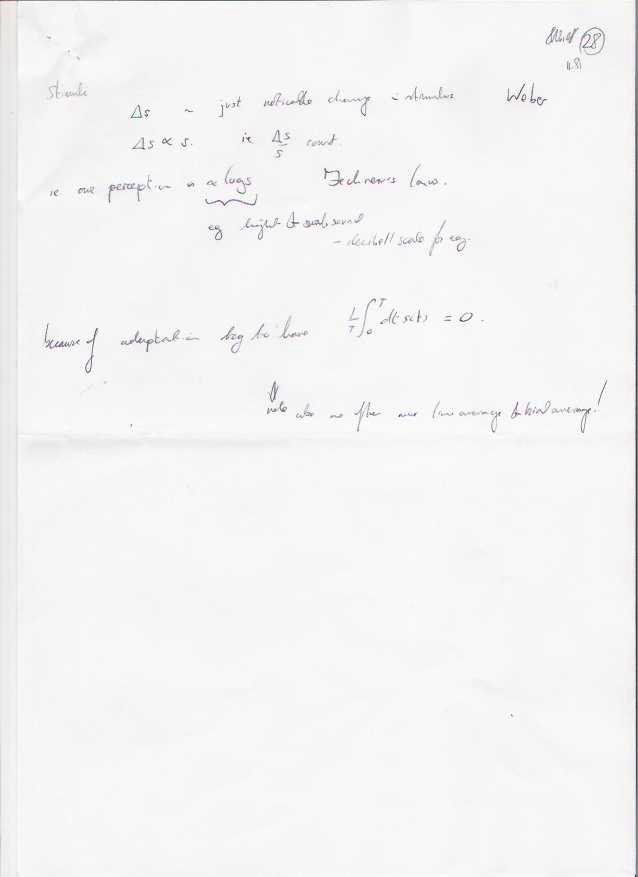 28
Stimuli
Δs ~ just noticable change in stimulus Weber
Δs ∝ s. ie Δs/s const.
ie our perception is ∝ log s Fechners law.
eg bright &
- decibell scale for eg.
because of adaptation to have 1/T ∫₀ᵀ dt s(t) = 0.
note also we often use time average & trial average!